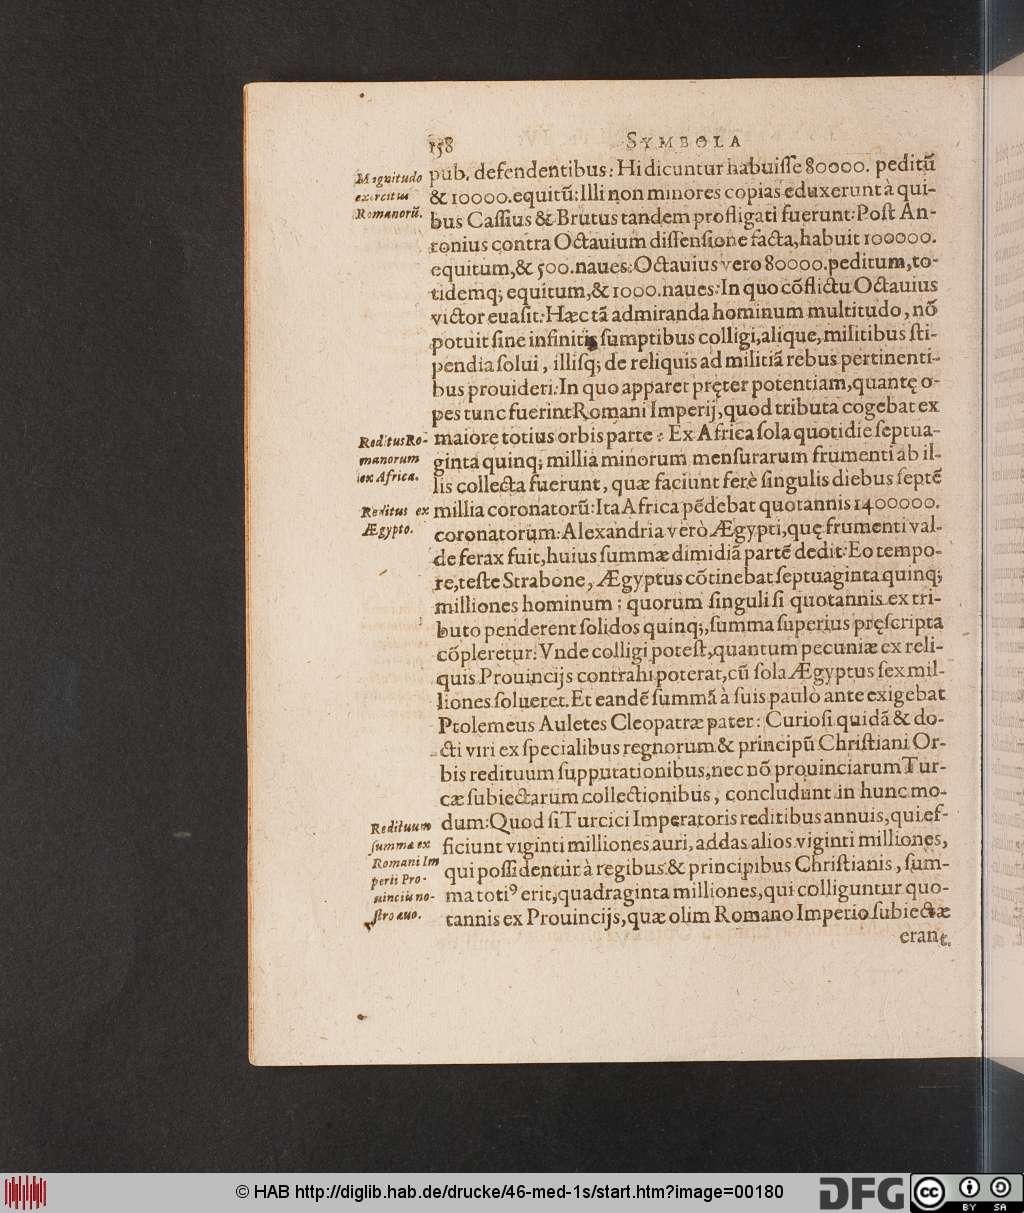 158 SYMBOLA
pub. defendentibus: Hi dicuntur habuiſſe 80000. peditū
& 10000. equitū: Illi non minores copias eduxerunt à qui-
bus Caſſius & Brutus tandem profligati fuerunt: Poſt An-
tonius contra Octauium diſſenſione facta, habuit 100000.
equitum, & 500. naues: Octauius vero 80000. peditum, to-
tidemq; equitum, & 1000. naues: In quo cōflictu Octauius
victor euaſit: Hæc tā admiranda hominum multitudo, nō
potuit ſine infinitis ſumptibus colligi, alique, militibus ſti-
pendia ſolui, illiſq; de reliquis ad militiā rebus pertinenti-
bus prouideri: In quo apparet pręter potentiam, quantę o-
pes tunc fuerint Romani Imperij, quod tributa cogebat ex
maiore totius orbis parte: Ex Africa ſola quotidie ſeptua-
ginta quinq; millia minorum menſurarum frumenti ab il-
lis collecta fuerunt, quæ faciunt ferè ſingulis diebus ſeptē
millia coronatorū: Ita Africa pēdebat quotannis 1400000.
coronatorum: Alexandria verò Ægypti, quę frumenti val-
de ferax fuit, huius ſummæ dimidiā partē dedit: Eo tempo-
re, teſte Strabone, Ægyptus cōtinebat ſeptuaginta quinq;
milliones hominum; quorum ſinguli ſi quotannis ex tri-
buto penderent ſolidos quinq;, ſumma ſuperius pręſcripta
cōpleretur: Vnde colligi poteſt, quantum pecuniæ ex reli-
quis Prouincijs contrahi poterat, cū ſola Ægyptus ſex mil-
liones ſolueret. Et eandē ſummā à ſuis paulò ante exigebat
Ptolemeus Auletes Cleopatræ pater: Curioſi quidā & do-
cti viri ex ſpecialibus regnorum & principū Chriſtiani Or-
bis redituum ſupputationibus, nec nō prouinciarum Tur-
cæ ſubiectarum collectionibus, concludunt in hunc mo-
dum: Quod ſi Turcici Imperatoris reditibus annuis, qui ef-
ficiunt viginti milliones auri, addas alios viginti milliones,
qui poſſidentur à regibus & principibus Chriſtianis, ſum-
ma totiꝰ erit, quadraginta milliones, qui colliguntur quo-
tannis ex Prouincijs, quæ olim Romano Imperio ſubiectæ
erant.
Magnitudo
exercitus
Romanorū.
Reditus Ro-
manorum
ex Africa.
Reditus ex
Ægypto.
Redituum
ſumma ex
Romani Im
perii Pro-
uinciis no-
ſtro æuo.
© HAB http://diglib.hab.de/drucke/46-med-1s/start.htm?image=00180
DFG
cc BY SA